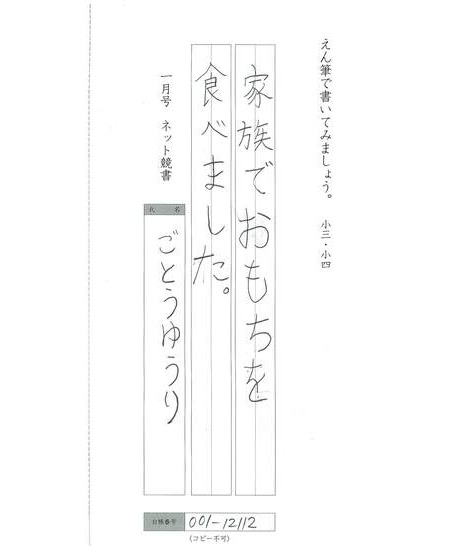 えん筆で書いてみましょう。 小三・小四
家族でおもちを
食べました。
一月号 ネット競書
氏名
ごとうゆうり
台帳番号
001-12112
(コピー不可)